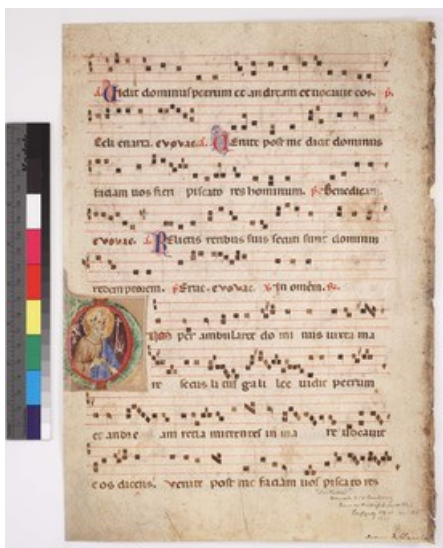 Vidit dominus petrum et andream et vocavit eos. p.
Celi enarra. evovae. a. Venite post me dicit dominus
faciam uos fieri piscato res hominum. p. Benedicam.
evovae. a. Relictis retibus suis secuti sunt dominum
redemptorem. p. Erue. evovae. v. In omnem. R.
per ambularet do mi nus iuxta ma
re secus li tus ga li lee uidit petrum
et andre am retia mittentes in ma re uocauit
e os dicens. venite post me faciam uos piscato res